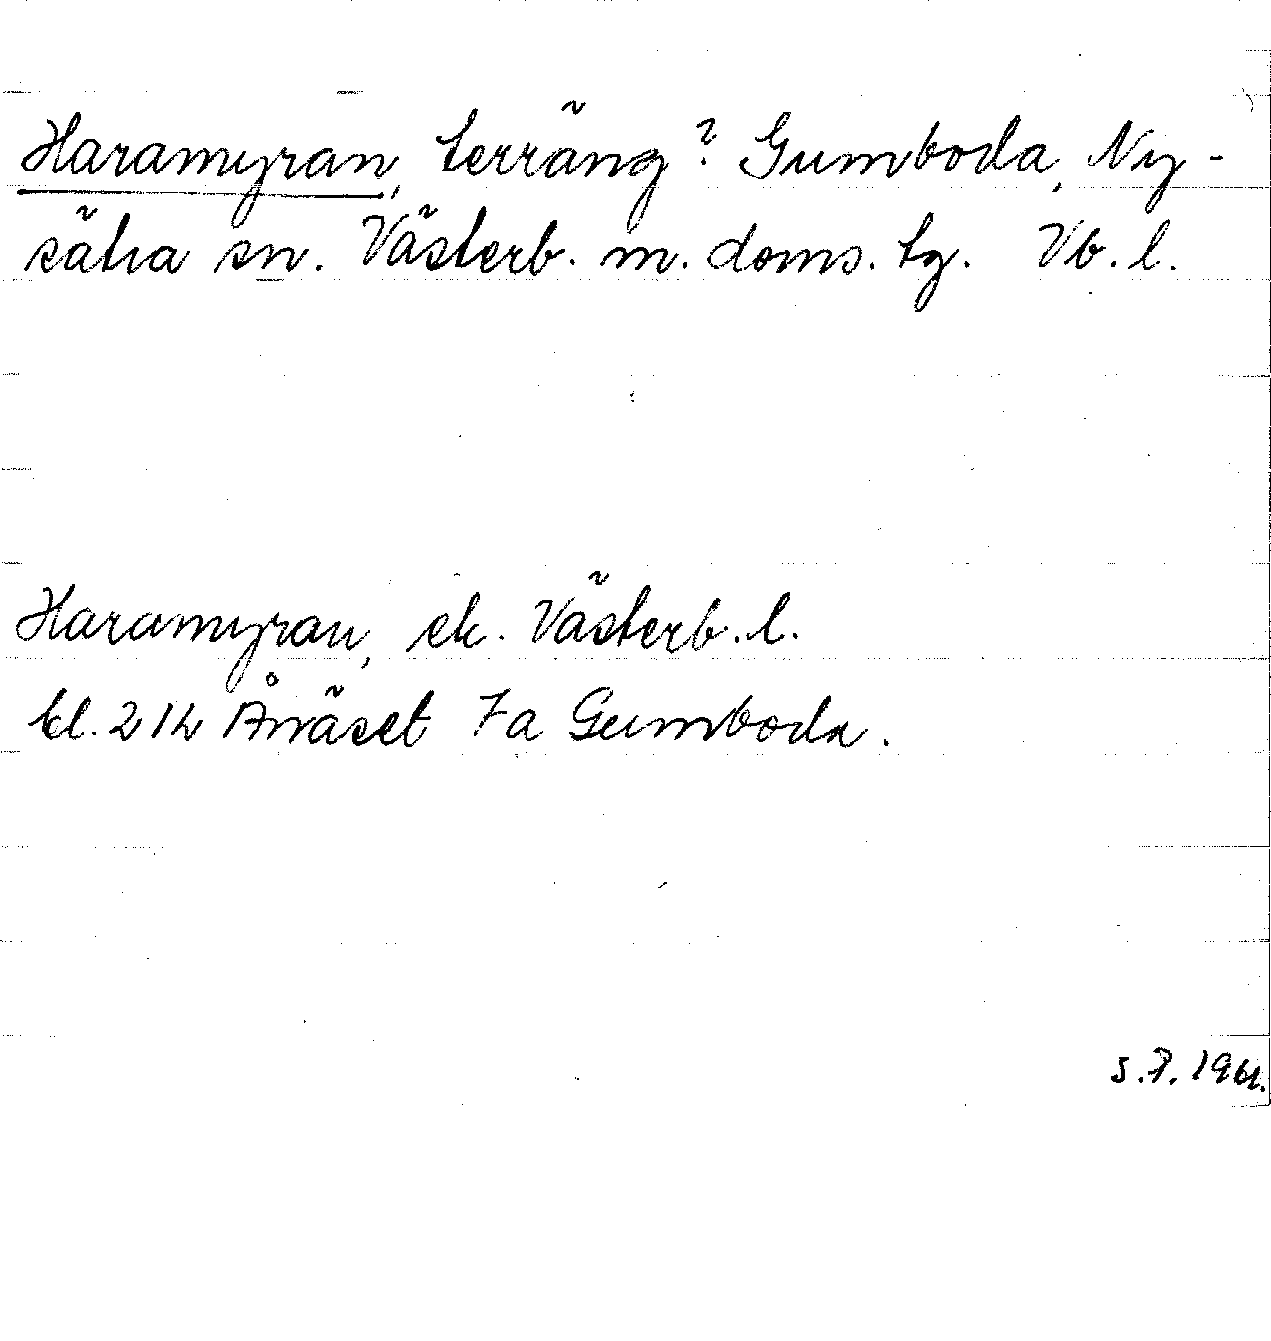 Haramyran, terräng? Gumboda, Ny-
sätra sn. Västerb. m. doms. tg. Vb. l.
Haramyran, ek. Västerb. l.
bl. 21h Ånäset 7a Gumboda.
S.F. 1961.